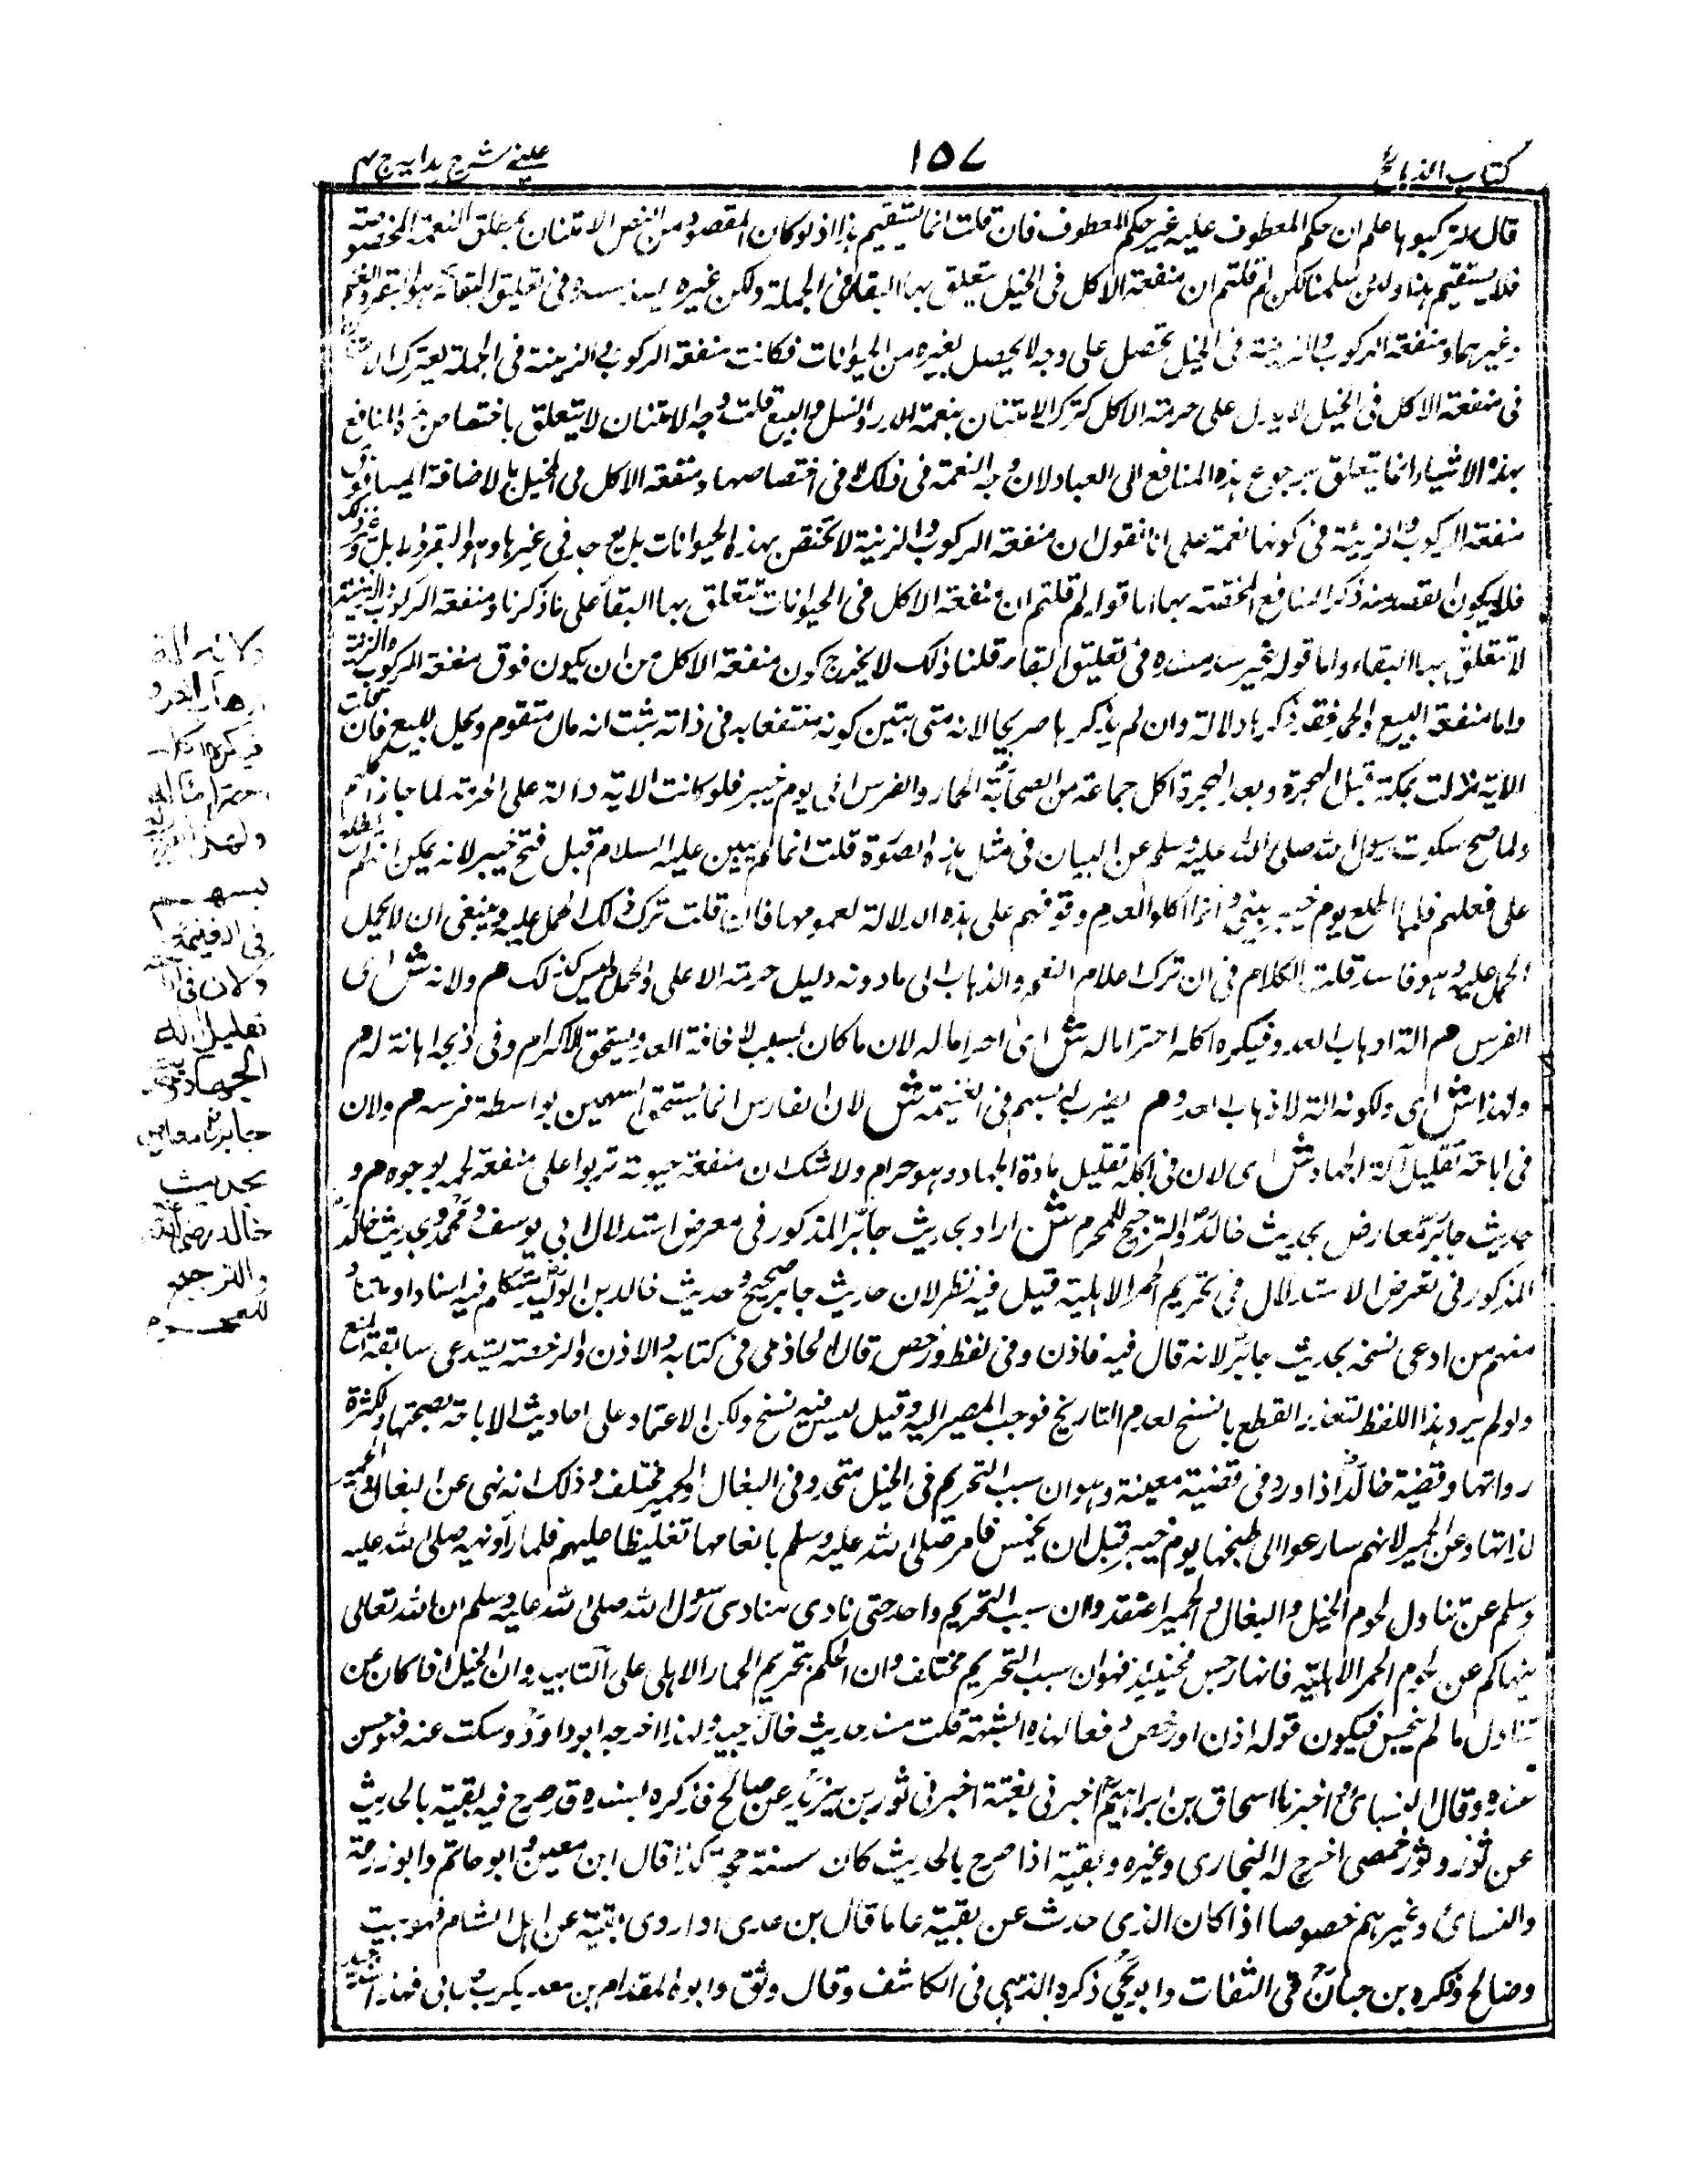 كتاب الذبائح
١٥٧
عینی شرح ہدایہ ج ۴
قال لتركبوها علم ان حكم المعطوف عليه غير حكم المعطوف فان قلت انما يستقيم هذا اذ لو كان المقصود من النص الامتنان بمطلق النعمة المخصوصة
فلا يستقيم هذا ولئن سلمنا لكن لم قلتم ان منفعة الاكل فى الخيل يتعلق بها البقاء فى الجملة ولكن غيره يسد مسده فى تعليق البقاء به هو البقر والغنم
وغيرهما ومنفعة الركوب والزينة فى الخيل تحصل على وجه لا يحصل بغيره من الحيوانات فكانت منفعة الركوب والزينة فى الجملة بعد ترك
فى منفعة الاكل فى الخيل لا يدل على حرمة الاكل كترك الامتنان بنعمة الدر والنسل والبيع قلت وجه الامتنان لا يتعلق باختصاص هذه المنافع
بهذه الاشياء انما يتعلق برجوع هذه المنافع الى العباد لان وجه النعمة فى ذلك لا فى اختصاصها ومنفعة الاكل فى الخيل بالاضافة اليها فوق
منفعة الركوب والزينة فى كونها نعمة على انا نقول ان منفعة الركوب والزينة لا تختص بهذه الحيوانات بل يوجد فى غيرها وهو البقر والابل وغير ذلك
فلا يكون القصد منه ذكر المنافع المختصة بها اما قوله لم قلتم ان منفعة الاكل فى الحيوانات تتعلق بها البقاء على ما ذكرنا ومنفعة الركوب والزينة
لا تتعلق بها البقاء واما قوله غيره يسد مسده فى تعليق البقاء قلنا ذلك لا يخرج كون منفعة الاكل من ان يكون فوق منفعة الركوب والزينة
واما منفعة البيع والحمل فقد ذكرها دلالة وان لم يذكرها صريحا لانه متى تبين كونه منتفعا به فى ذاته ثبت انه مال متقوم ومحل للبيع فان قلت
الآية نزلت بمكة قبل الهجرة وبعد الهجرة اكل جماعة من الصحابة الحمار والفرس الى يوم خيبر فلو كانت الآية دالة على الحرمة لما جاز اكلهم
ولما صح سكوت رسول الله صلى الله عليه وسلم عن البيان فى مثل هذه الصورة قلت انما لم يبين عليه السلام قبل فتح خيبر لانه يمكن انه لم يطلع
على فعلهم فلما اطلع يوم خيبر بين وانما اكلوا لعدم وقوفهم على هذه الدلالة لعمومها فان قلت ترك ذلك الحمل عليه وينبغى ان لا يحل
الحمل عليه وهو فاسد قلت الكلام فى ان ترك اعلام النعم والذهاب الى ما دونه دليل حرمة الاعلى والحمل ليس كذلك هم ولانه ش اى
الفرس هم آلة ارهاب العدو فيكره اكله احتراما له ش اى احتراما له لان ما كان بسبب لاخافة العدو يستحق الاكرام وفى ذبحه اهانة له هم
ولهذا ش اى ولكونه آلة لارهاب العدو هم يضرب له بسهم فى الغنيمة ش لان الفارس انما يستحق السهمين بواسطة فرسه هم ولان
فى اباحته تقليل آلة الجهاد ش اى لان فى اكله تقليل مادة الجهاد وهو حرام ولا شك ان منفعة حيوته تربوا على منفعة لحمه بوجوه هم و
حديث جابر معارض بحديث خالد والترجيح للمحرم ش اراد بحديث جابر المذكور فى معرض استدلال ابى يوسف ومحمد وبحديث خالد
المذكور فى تعرض الاستدلال فى تحريم الحمر الاهلية قيل فيه نظر لان حديث جابر صحيح وحديث خالد بن الوليد متكلم فيه اسنادا ومتنا و
منهم من ادعى نسخه بحديث جابر لانه قال فيه فاذن وفى لفظ ورخص قال الحازمى فى كتابه والاذن والرخصة يستدعى سابقة المنع
ولو لم يرد هذا اللفظ لتعذر القطع بالنسخ لعدم التاريخ فوجب المصير اليه وقيل ليس فيه نسخ ولكن الاعتماد على احاديث الاباحة لصحتها وكثرة
رواتها وقضية خالد اذا ورد فى قضية معينة وهو ان سبب التحريم فى الخيل متحد وفى البغال والحمير مختلف وذلك انه نهى عن البغال والحمير
لذاتها وعن الحمير لانهم سارعوا الى طبخها يوم خيبر قبل ان يخمس فامر صلى الله عليه وسلم باكفائها تغليظا عليهم فلما رأوا نهيه صلى الله عليه
وسلم عن تناول لحوم الخيل والبغال والحمير اعتقدوا ان سبب التحريم واحد حتى نادى منادى رسول الله صلى الله عليه وسلم ان الله تعالى
ينهاكم عن لحوم الحمر الاهلية فانها رجس فحينئذ فهموا ان سبب التحريم مختلف وان الحكم بتحريم الحمار الاهلى على التابيد وان الخيل انما كان عن
تناول ما لم يخمس فيكون قوله اذن او رخص دفعا لهذه الشبهة قلت سند حديث خالد جيد ولهذا اخرجه ابو داود وسكت عنه فهو حسن
عنده وقال النسائى اخبرنا اسحاق بن ابراهيم اخبرنى بقية اخبرنى ثور بن يزيد عن صالح فذكره بسنده وقد صرح فيه بقية بالحديث
عن ثور وثور حمصى اخرج له البخارى وغيره وبقية اذا صرح بالحديث كان سنده حجة كذا قال ابن معين وابو حاتم وابو زرعة
والنسائى وغيرهم خصوصا اذا كان الذى حدث عن بقية عاما قال بن عدى اذا روى بقية عن اهل الشام فهو ثبت
وصالح ذكره بن حبان فى الثقات وابو يحيى ذكره الذهبى فى الكاشف وقال وثق وابوه المقدام بن معديكرب صحابى فهذا سند
ولانه آلة
ارهاب العدو
فيكره اكله
احتراما له
ولهذا يضرب له
بسهم
فى الغنيمة
ولان فى اباحته
تقليل آلة
الجهاد وحديث
جابر معارض
بحديث
خالد رضى الله عنه
والترجيح
للمحرم